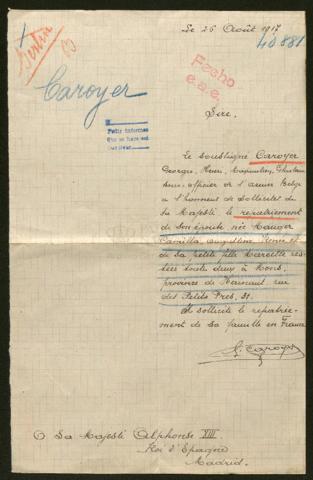 Le 26 Août 1917
40881
Berlin
Caroyer
Fecho
e.a.e.
Pedir informes
Sire,
Le soussigné Caroyer
Georges, Henri, Maximilien, Ghislain
sous-officier de l'armée Belge
a l'honneur de solliciter de
Sa Majesté le rapatriement
de son épouse née
Camilla, Augustine, Henriette
de sa petite fille Marcelle res-
tées toute deux à Mons,
province de Hainaut, rue
des Petits Prés, 31.
Il sollicite le rapatrie-
ment de sa famille en France
G. Caroyer
A Sa Majesté Alphonse XIII
Roi d'Espagne
Madrid.